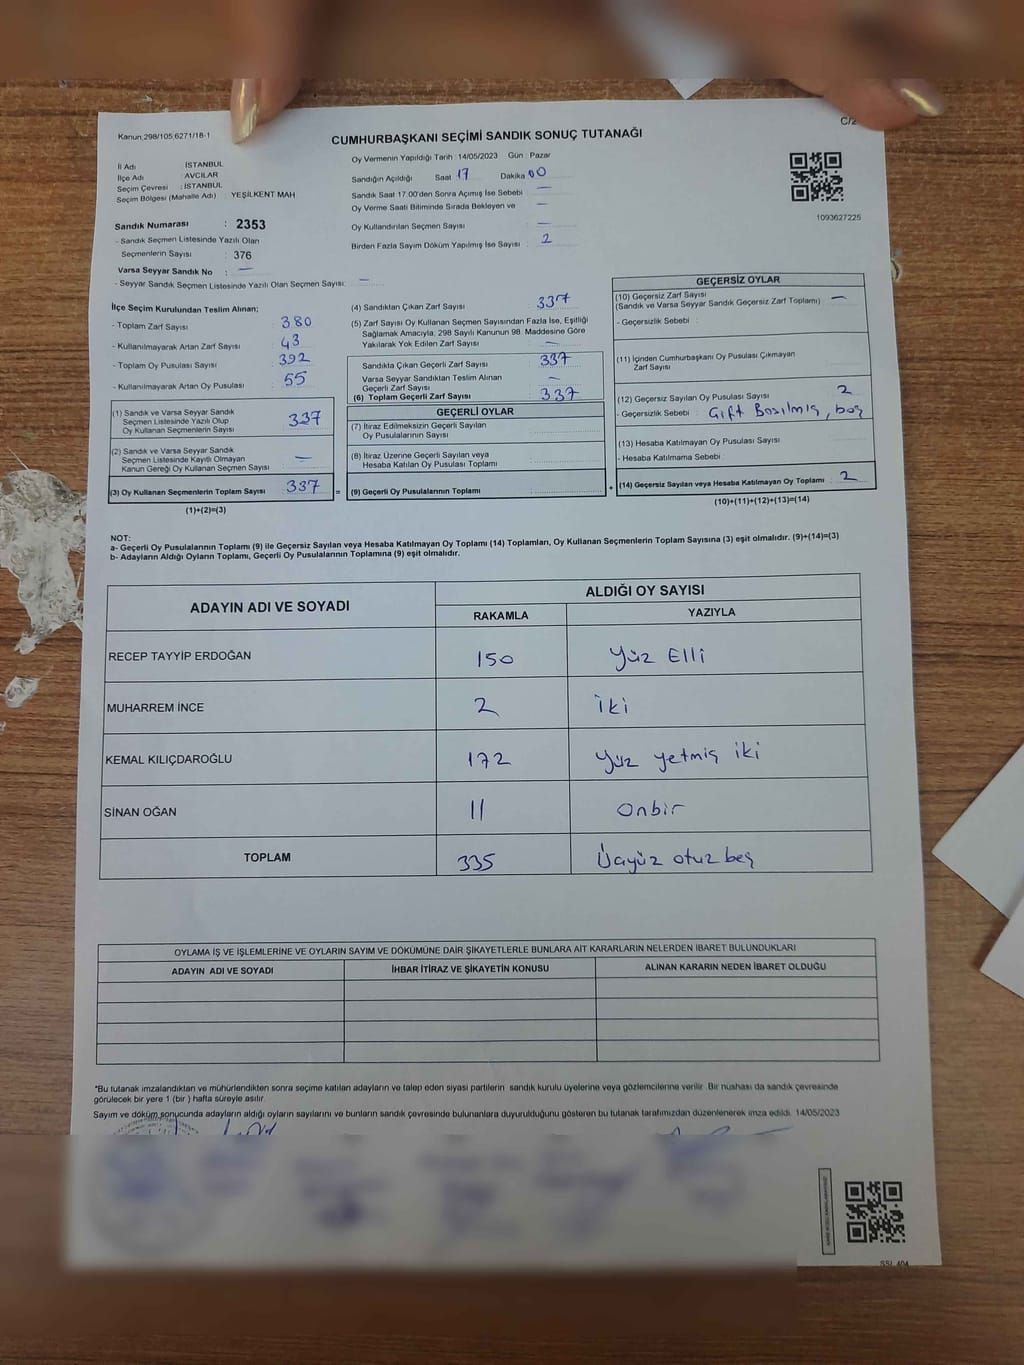 Kanun 298/105,6271/18-1
C/2
CUMHURBAŞKANI SEÇİMİ SANDIK SONUÇ TUTANAĞI
İl Adı : İSTANBUL
İlçe Adı : AVCILAR
Seçim Çevresi : İSTANBUL
Seçim Bölgesi (Mahalle Adı) YEŞİLKENT MAH
Oy Vermenin Yapıldığı Tarih :14/05/2023 Gün : Pazar
Sandığın Açıldığı Saat 17 Dakika 00
Sandık Saat 17.00'den Sonra Açımış İse Sebebi : —
Oy Verme Saati Bitiminde Sırada Bekleyen ve —
Oy Kullandırılan Seçmen Sayısı : —
Birden Fazla Sayım Döküm Yapılmış İse Sayısı : 2
1093627225
Sandık Numarası : 2353
- Sandık Seçmen Listesinde Yazılı Olan
Seçmenlerin Sayısı : 376
Varsa Seyyar Sandık No : —
- Seyyar Sandık Seçmen Listesinde Yazılı Olan Seçmen Sayısı: —
İlçe Seçim Kurulundan Teslim Alınan;
- Toplam Zarf Sayısı : 380
- Kullanılmayarak Artan Zarf Sayısı : 43
- Toplam Oy Pusulası Sayısı : 392
- Kullanılmayarak Artan Oy Pusulası : 55
(1) Sandık ve Varsa Seyyar Sandık
Seçmen Listesinde Yazılı Olup
Oy Kullanan Seçmenlerin Sayısı : 337
(2) Sandık ve Varsa Seyyar Sandık
Seçmen Listesinde Kayıtlı Olmayan
Kanun Gereği Oy Kullanan Seçmen Sayısı : —
(3) Oy Kullanan Seçmenlerin Toplam Sayısı : 337 =
(1)+(2)=(3)
(4) Sandıktan Çıkan Zarf Sayısı : 337
(5) Zarf Sayısı Oy Kullanan Seçmen Sayısından Fazla İse, Eşitliği
Sağlamak Amacıyla, 298 Sayılı Kanunun 98. Maddesine Göre
Yakılarak Yok Edilen Zarf Sayısı : —
Sandıkta Çıkan Geçerli Zarf Sayısı : 337
Varsa Seyyar Sandıktan Teslim Alınan
Geçerli Zarf Sayısı : —
(6) Toplam Geçerli Zarf Sayısı : 337
GEÇERLİ OYLAR
(7) İtiraz Edilmeksizin Geçerli Sayılan
Oy Pusulalarının Sayısı :
(8) İtiraz Üzerine Geçerli Sayılan veya
Hesaba Katılan Oy Pusulası Toplamı :
(9) Geçerli Oy Pusulalarının Toplamı : +
GEÇERSİZ OYLAR
(10) Geçersiz Zarf Sayısı
(Sandık ve Varsa Seyyar Sandık Geçersiz Zarf Toplamı) : —
- Geçersizlik Sebebi :
(11) İçinden Cumhurbaşkanı Oy Pusulası Çıkmayan
Zarf Sayısı :
(12) Geçersiz Sayılan Oy Pusulası Sayısı : 2
- Geçersizlik Sebebi : Çift Basılmış, boş
(13) Hesaba Katılmayan Oy Pusulası Sayısı :
- Hesaba Katılmama Sebebi :
(14) Geçersiz Sayılan veya Hesaba Katılmayan Oy Toplamı : 2
(10)+(11)+(12)+(13)=(14)
NOT:
a- Geçerli Oy Pusulalarının Toplamı (9) ile Geçersiz Sayılan veya Hesaba Katılmayan Oy Toplamı (14) Toplamları, Oy Kullanan Seçmenlerin Toplam Sayısına (3) eşit olmalıdır. (9)+(14)=(3)
b- Adayların Aldığı Oyların Toplamı, Geçerli Oy Pusulalarının Toplamına (9) eşit olmalıdır.
ADAYIN ADI VE SOYADI
ALDIĞI OY SAYISI
RAKAMLA YAZIYLA
RECEP TAYYİP ERDOĞAN 150 Yüz Elli
MUHARREM İNCE 2 İki
KEMAL KILIÇDAROĞLU 172 Yüz yetmiş iki
SİNAN OĞAN 11 Onbir
TOPLAM 335 Üçyüz otuz beş
OYLAMA İŞ VE İŞLEMLERİNE VE OYLARIN SAYIM VE DÖKÜMÜNE DAİR ŞİKAYETLERLE BUNLARA AİT KARARLARIN NELERDEN İBARET BULUNDUKLARI
ADAYIN ADI VE SOYADI İHBAR İTİRAZ VE ŞİKAYETİN KONUSU ALINAN KARARIN NEDEN İBARET OLDUĞU
*Bu tutanak imzalandıktan ve mühürlendikten sonra seçime katılan adayların ve talep eden siyasi partilerin sandık kurulu üyelerine veya gözlemcilerine verilir. Bir nüshası da sandık çevresinde
görülecek bir yere 1 (bir ) hafta süreyle asılır.
Sayım ve döküm sonucunda adayların aldığı oyların sayılarını ve bunların sandık çevresinde bulunanlara duyurulduğunu gösteren bu tutanak tarafımızdan düzenlenerek imza edildi. 14/05/2023